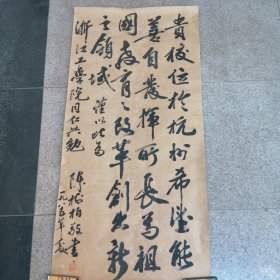 贵校位于杭州希望能
善自发挥所长为祖
国教育之改革创出新
之领域 谨以此为
浙江工学院同仁共勉
陈植柏敬书
一九八五年